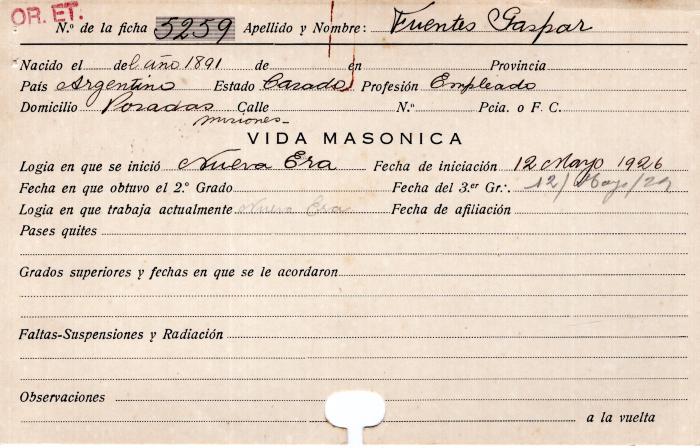 OR. ET.
N.º de la ficha 5259 Apellido y Nombre: Fuentes Gaspar
Nacido el del año 1891 de en Provincia
País Argentino Estado Casado Profesión Empleado
Domicilio Posadas Calle N.º Pcia. o F. C.
Misiones
VIDA MASONICA
Logia en que se inició Nueva Era Fecha de iniciación 12 Mayo 1926
Fecha en que obtuvo el 2.º Grado Fecha del 3.er Gr∴ 12/Mayo/29
Logia en que trabaja actualmente Nueva Era Fecha de afiliación
Pases quites
Grados superiores y fechas en que se le acordaron
Faltas-Suspensiones y Radiación
Observaciones
a la vuelta